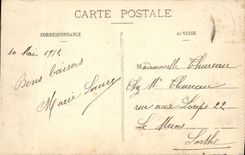 CARTE POSTALE
CORRESPONDANCE
ADRESSE
10 Mai 1912
Bons baisers
Marie Louise
Mademoiselle Thureau
Chez Mr Thureau
rue aux Loups 22
Le Mans
Sarthe